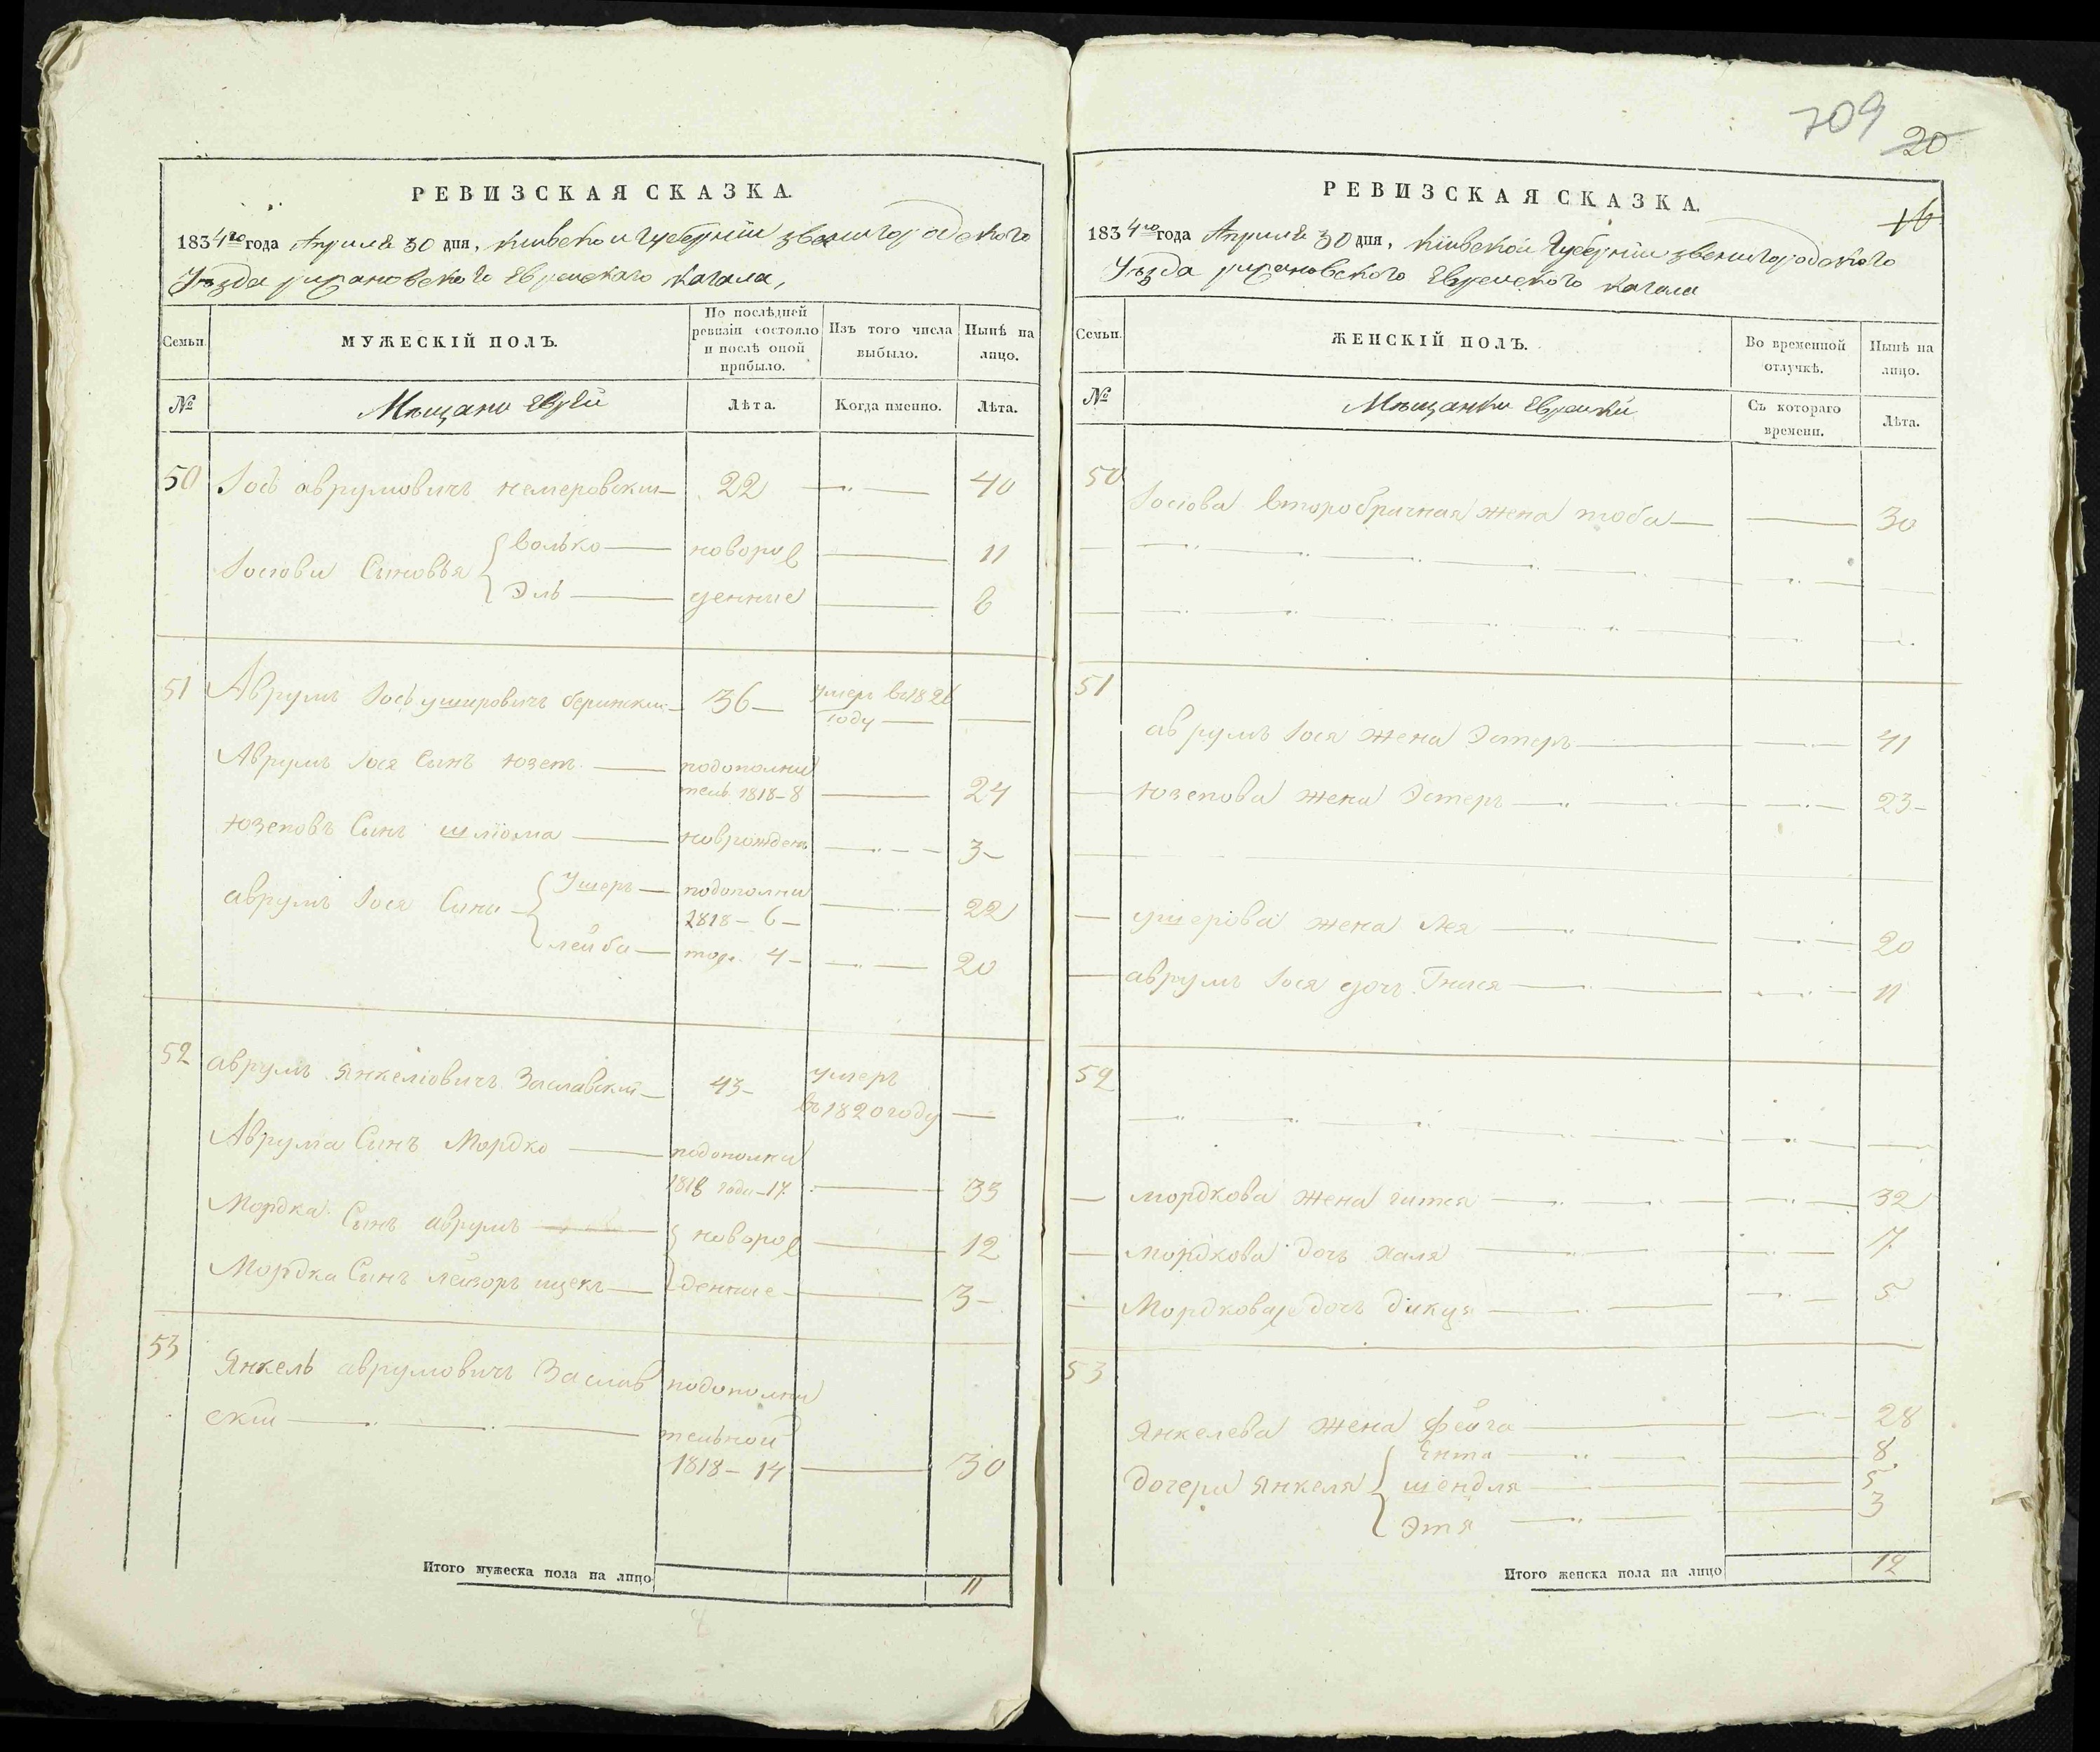 709
20
РЕВИЗСКАЯ СКАЗКА.
1834го года Апреля 30 дня, Киевской Губернии Звенигородского
Уезда рижановского Еврейского кагала,
Семьи.
МУЖЕСКІЙ ПОЛЪ.
По послѣдней ревизіи состояло и послѣ оной прибыло.
Изъ того числа выбыло.
Нынѣ на лицо.
№
Мещане Евреи
Лѣта.
Когда именно.
Лѣта.
50 Іось аврумовичъ немеровскии 22 40
Іосіови Синовья { волько новоро 11
Эль жденние 6
51 Аврумъ Іось ушировичъ 36 умеръ в 1826
году
Аврумъ Іося Синъ юзеп подополни
тель 1818-8 24
юзеповъ Синъ шліома новрожденъ 3
аврумъ Іося Сини { Ушеръ подополни
1818-6 22
лейба тор. 4 20
52 аврумъ Янкеліовичъ Заславскій 43 умеръ
въ 1820 году
Аврума Синъ Мордко подополни
1818 года-17 33
Мордка Синъ аврумъ { новоро 12
Мордка Синъ лейзоръ ицекъ { денние 3
53 Янкель аврумовичъ Заслав подополни
скій тельной
1818-14 30
Итого мужеска пола на лицо 11
РЕВИЗСКАЯ СКАЗКА.
16
1834го года Апреля 30 дня, Кіивской Губерніи Звенигородского
Уезда рижановского Еврейского кагала
Семьи.
ЖЕНСКІЙ ПОЛЪ.
Во временной отлучкѣ.
Нынѣ на лицо.
№
Мещанки Еврейки
Съ котораго времени.
Лѣта.
50
Іосіова второбрачная жена тоба 30
51
аврумъ Іося жена Эстеръ 41
юзепова жена Эстеръ 23
ушерова жена Лея 20
аврумъ Іося дочь Гнися 11
52
мордкова жена гитля 32
мордкова дочь халя 7
Мордкова дочь 5
53
Янкелева жена фейга 28
Ента 8
дочери Янкеля { шендля 5
Этя 3
Итого женска пола на лицо 12